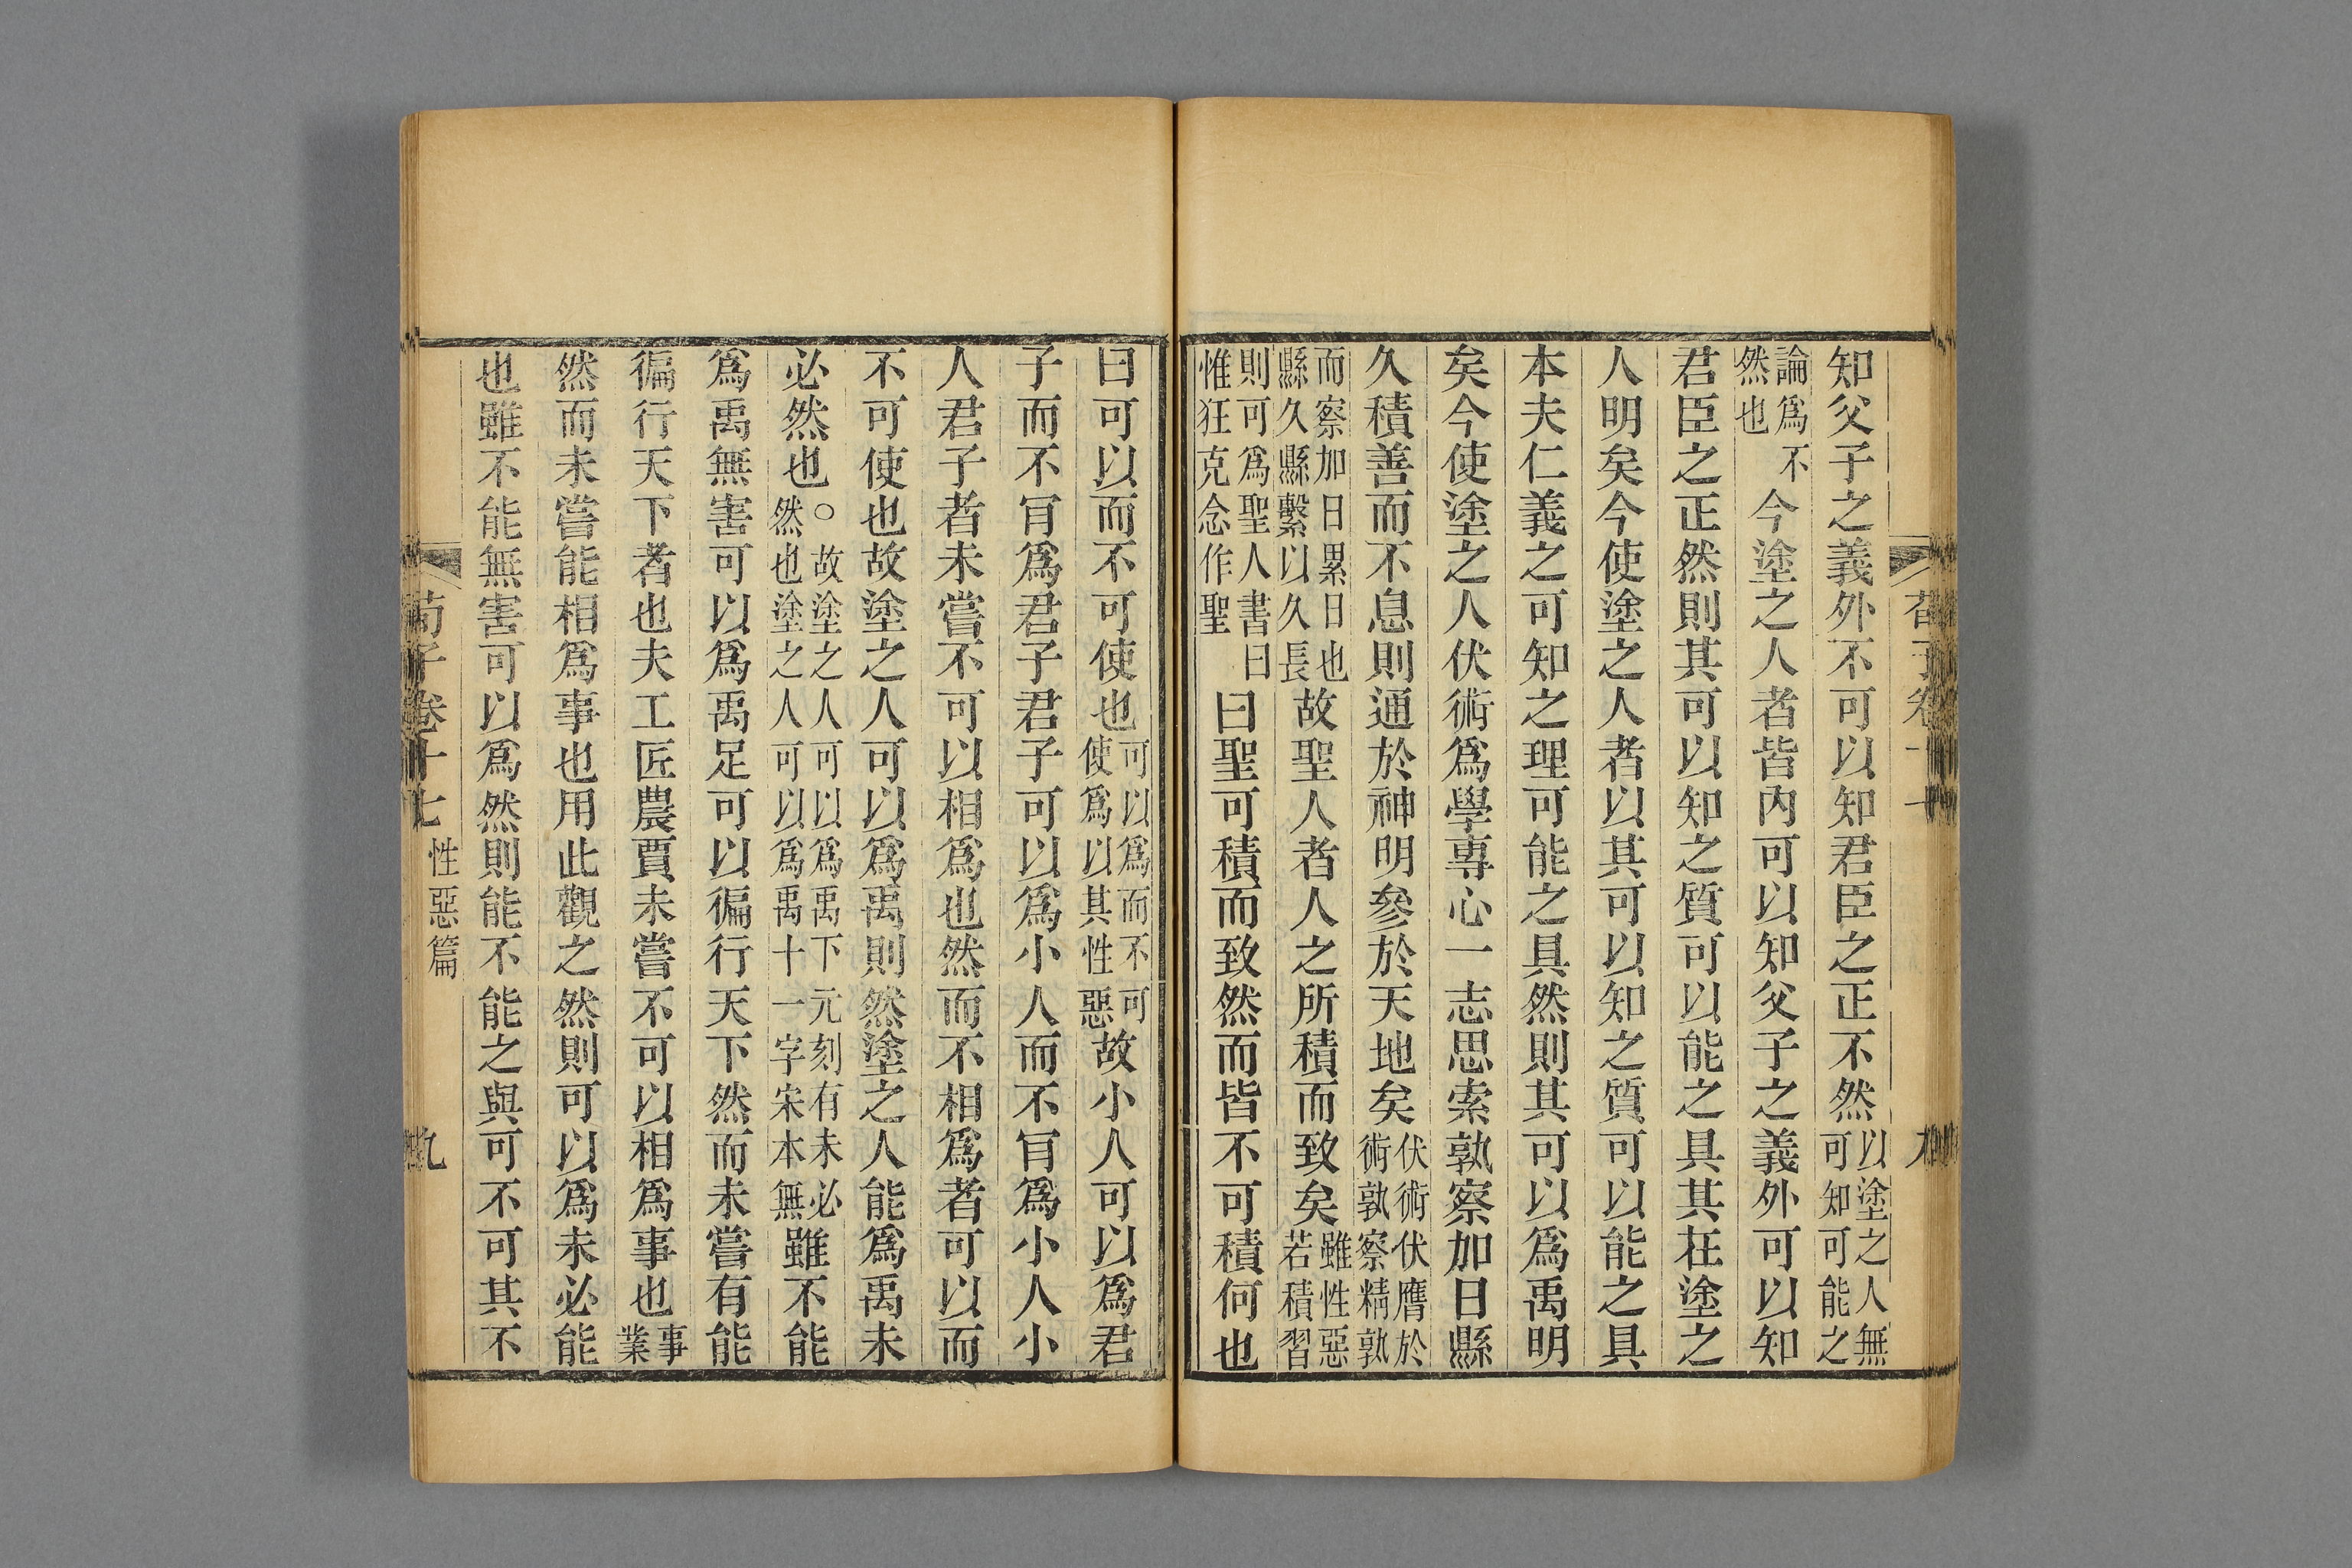 知父子之義外不可以知君臣之正不然以塗之人無可知可能之
論爲不然也今塗之人者皆內可以知父子之義外可以知
君臣之正然則其可以知之質可以能之具其在塗之
人明矣今使塗之人者以其可以知之質可以能之具
本夫仁義之可知之理可能之具然則其可以爲禹明
矣今使塗之人伏術爲學專心一志思索孰察加日縣
久積善而不息則通於神明參於天地矣伏術伏膺於術孰察精孰
而察加日累日也縣久縣繫以久長故聖人者人之所積而致矣雖性惡若積習
則可爲聖人書曰惟狂克念作聖曰聖可積而致然而皆不可積何也
曰可以而不可使也可以爲而不可使爲以其性惡故小人可以爲君
子而不肎爲君子君子可以爲小人而不肎爲小人小
人君子者未嘗不可以相爲也然而不相爲者可以而
不可使也故塗之人可以爲禹則然塗之人能爲禹未
必然也○故塗之人可以爲禹下元刻有未必然也塗之人可以爲禹十一字宋本無雖不能
爲禹無害可以爲禹足可以徧行天下然而未嘗有能
徧行天下者也夫工匠農賈未嘗不可以相爲事也事業
然而未嘗能相爲事也用此觀之然則可以爲未必能
也雖不能無害可以爲然則能不能之與可不可其不
荀子卷十七 性惡篇 九